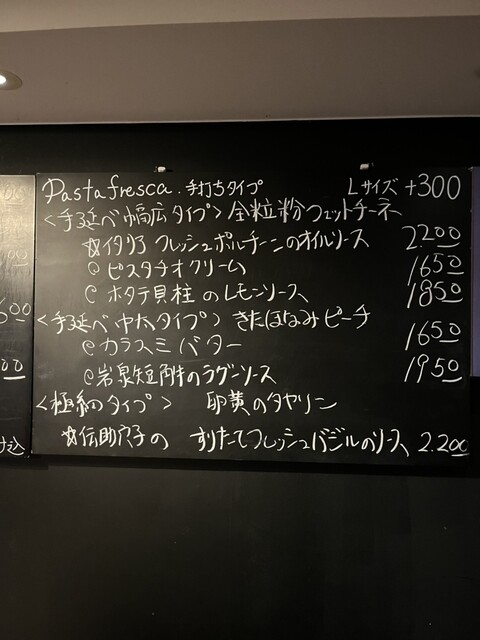 Pasta fresca. 手打ちタイプ Lサイズ +300
<手延べ 幅広タイプ> 全粒粉フェットチーネ
☆イタリア フレッシュポルチーニのオイルソース 2200
@ピスタチオクリーム 1650
@ホタテ貝柱のレモンソース 1850
<手延べ 中太タイプ> きたほなみピーチ
@カラスミバター 1650
@岩泉短角牛のラグーソース 1950
<極細タイプ> 卵黄のタヤリン
☆伝助穴子の すりたてフレッシュバジルのソース 2.200
00
00